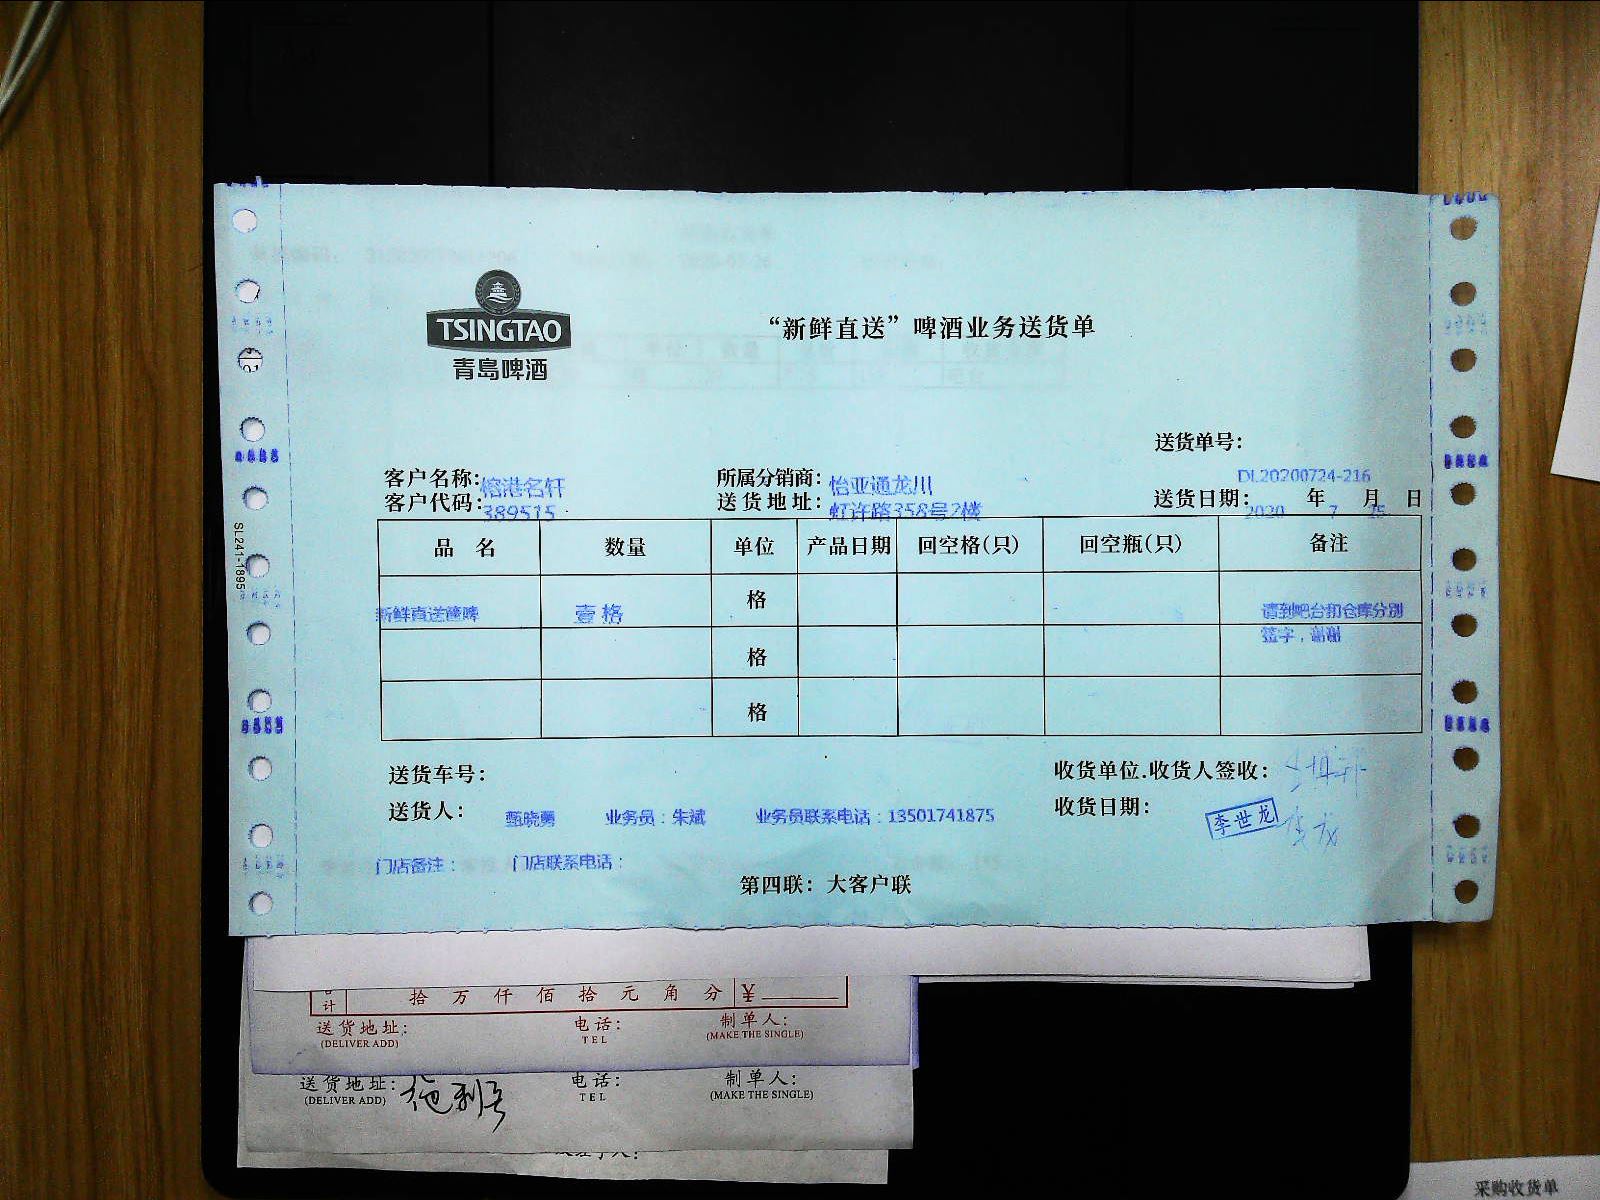 TSINGTAO
青島啤酒
“新鲜直送”啤酒业务送货单
送货单号：
DL20200724-216
客户名称：榕港名轩 所属分销商：怡亚通龙川
客户代码：389515 送货地址：虹许路358号2楼 送货日期：2020 年 7 月 25 日
品名 数量 单位 产品日期 回空格(只) 回空瓶(只) 备注
新鲜直送筐啤 壹格 格 请到吧台和仓库分别
签字，谢谢
格
格
送货车号： 收货单位.收货人签收：
送货人： 甄晓勇 业务员：朱斌 业务员联系电话：13501741875 收货日期： 李世龙
门店备注： 门店联系电话：
第四联：大客户联
SL241-1895
计 拾 万 仟 佰 拾 元 角 分 ¥
送货地址： 电话： 制单人：
(DELIVER ADD) TEL (MAKE THE SINGLE)
送货地址： 电话： 制单人：
(DELIVER ADD) TEL (MAKE THE SINGLE)
采购收货单